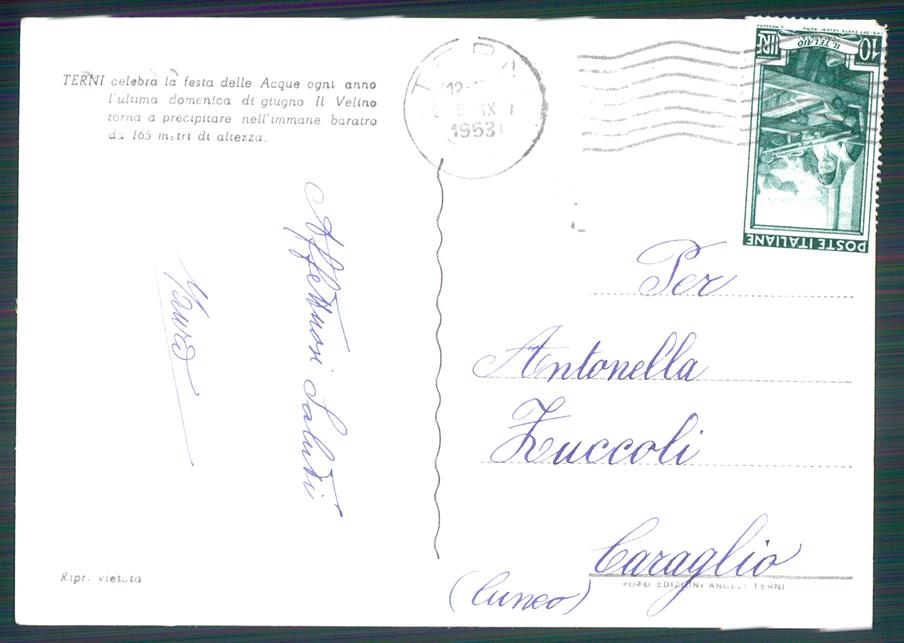 TERNI celebra la festa delle Acque ogni anno
l'ultima domenica di giugno Il Velino
torna a precipitare nell'immane baratro
da 165 metri di altezza.
Affettuosi Saluti
Ripr. vietata
12
IX
1953
10 LIRE
IL TELAIO
POSTE ITALIANE
Per
Antonella
Zuccoli
Caraglio
FOTO EDIZIONI ANGELI TERNI
(Cuneo)